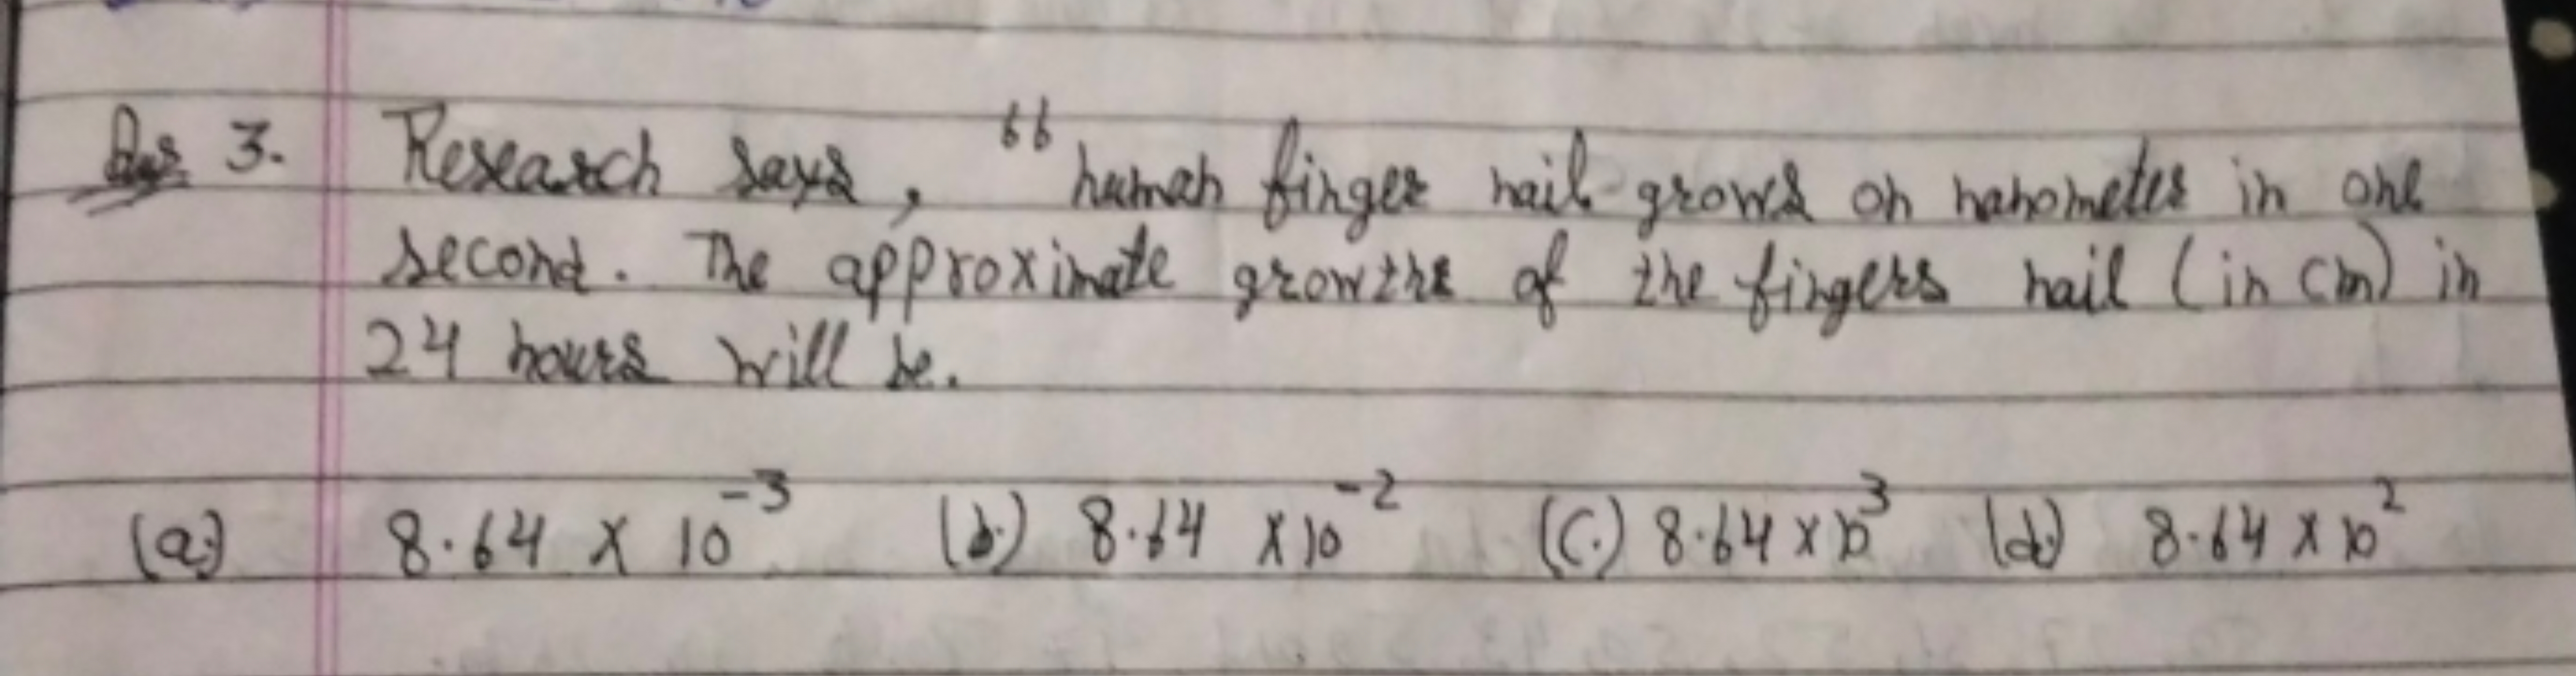 Ques 3. Research says, "human finger nail grows on nanometer in one
second. The approximate growths of the fingers nail (in cm) in
24 hours will be.
(a.) 8.64 x 10⁻³ (b.) 8.64 x 10⁻² (C.) 8.64 x 10³ (d.) 8.64 x 10²